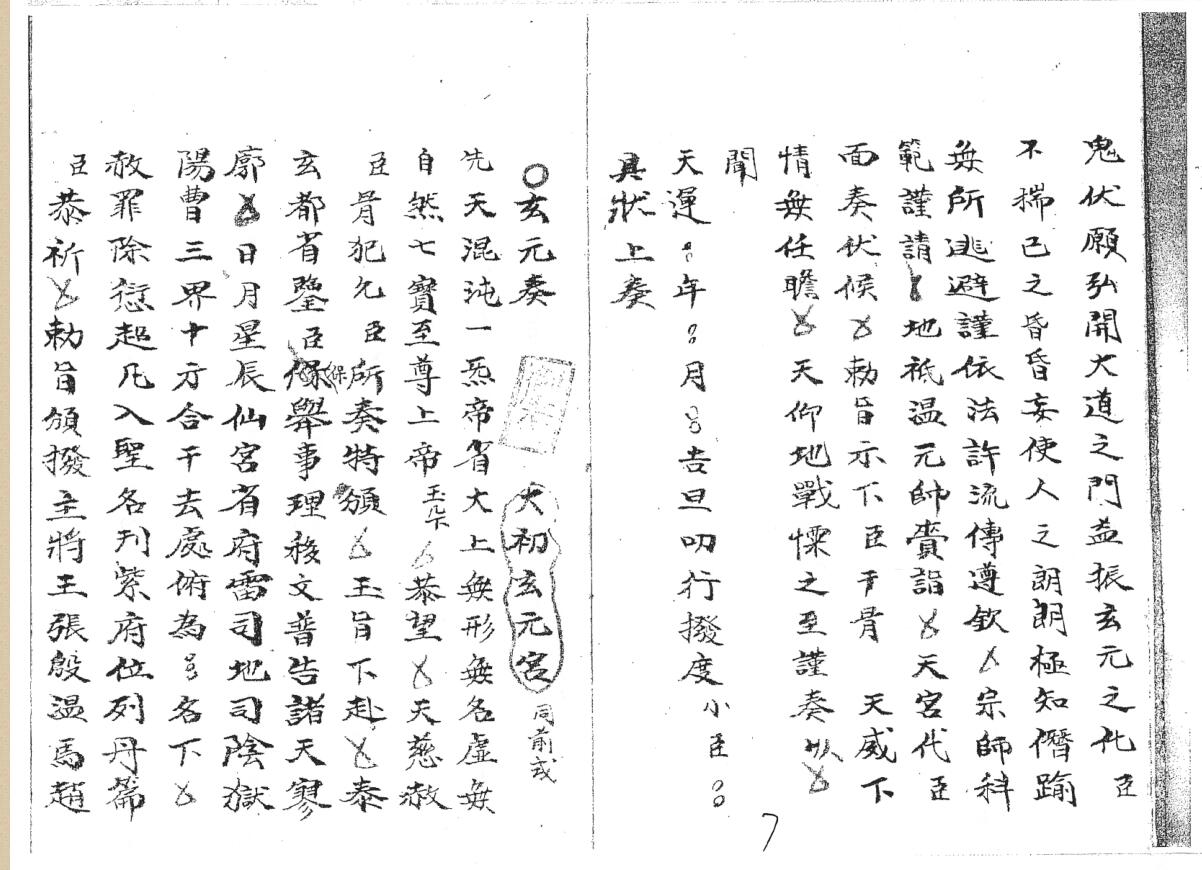 鬼伏願弘開大道之門益振玄元之化臣
不揣已之昏昏妄使人之朗朗極知僭踰
無所逃避謹依法許流傳遵欽宗師科
範謹請地祇温元帥賫詣天宮代臣
面奏伏候勅旨示下臣干冐天威下
情無任瞻天仰地戰慄之至謹奏以
聞
天運年月吉旦叨行撥度小臣
具狀上奏
○玄元奏 大初玄元宮 同前式
先天混沌一炁帝省大上無形無名虛無
自然七寶至尊上帝玉陛下恭望天慈赦
臣冐犯允臣所奏特頒玉旨下赴泰
玄都省鑒臣保舉事理移文普告諸天寥
廓日月星辰仙宮省府雷司地司陰獄
陽曹三界十方合干去處俯為名下
赦罪除愆超凡入聖名刋紫府位列丹篇
臣恭祈勅旨頒撥主將王張殷温馬趙
7